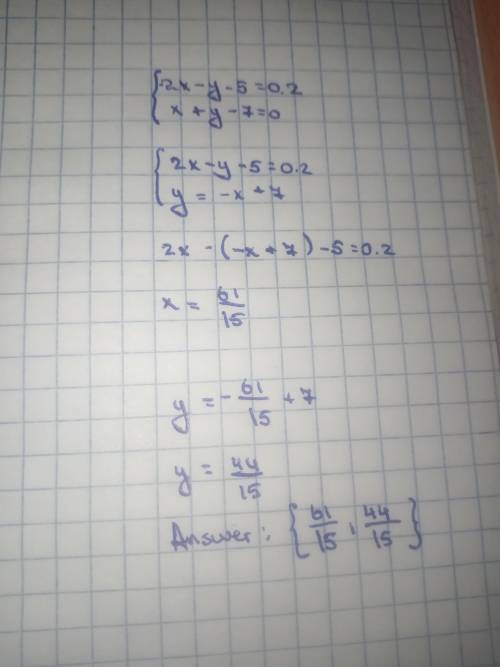 {2x-y-5=0.2
x+y-7=0
{2x-y-5=0.2
y = -x+7
2x -(-x+7)-5=0.2
x = 61/15
y = -61/15 +7
y = 44/15
Answer: {61/15, 44/15}